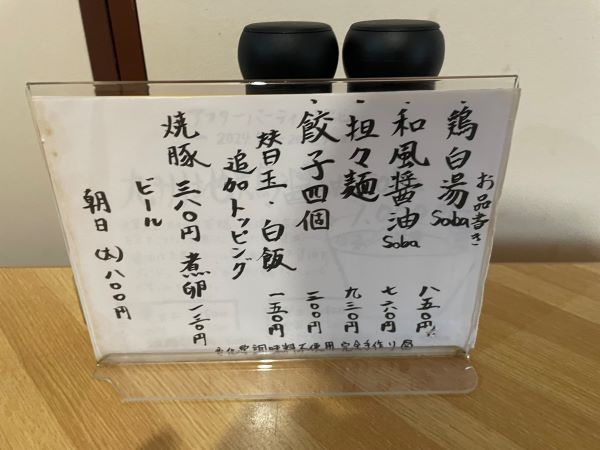 お品書き
・鶏白湯 Soba 八五〇円
・和風醤油 Soba 七六〇円
・担々麺 九三〇円
・餃子四個 三〇〇円
・白飯 一五〇円
追加トッピング
焼豚 三八〇円 煮卵 一三〇円
ビール
朝日 (大) 八〇〇円
調味料不使用 完全手作り